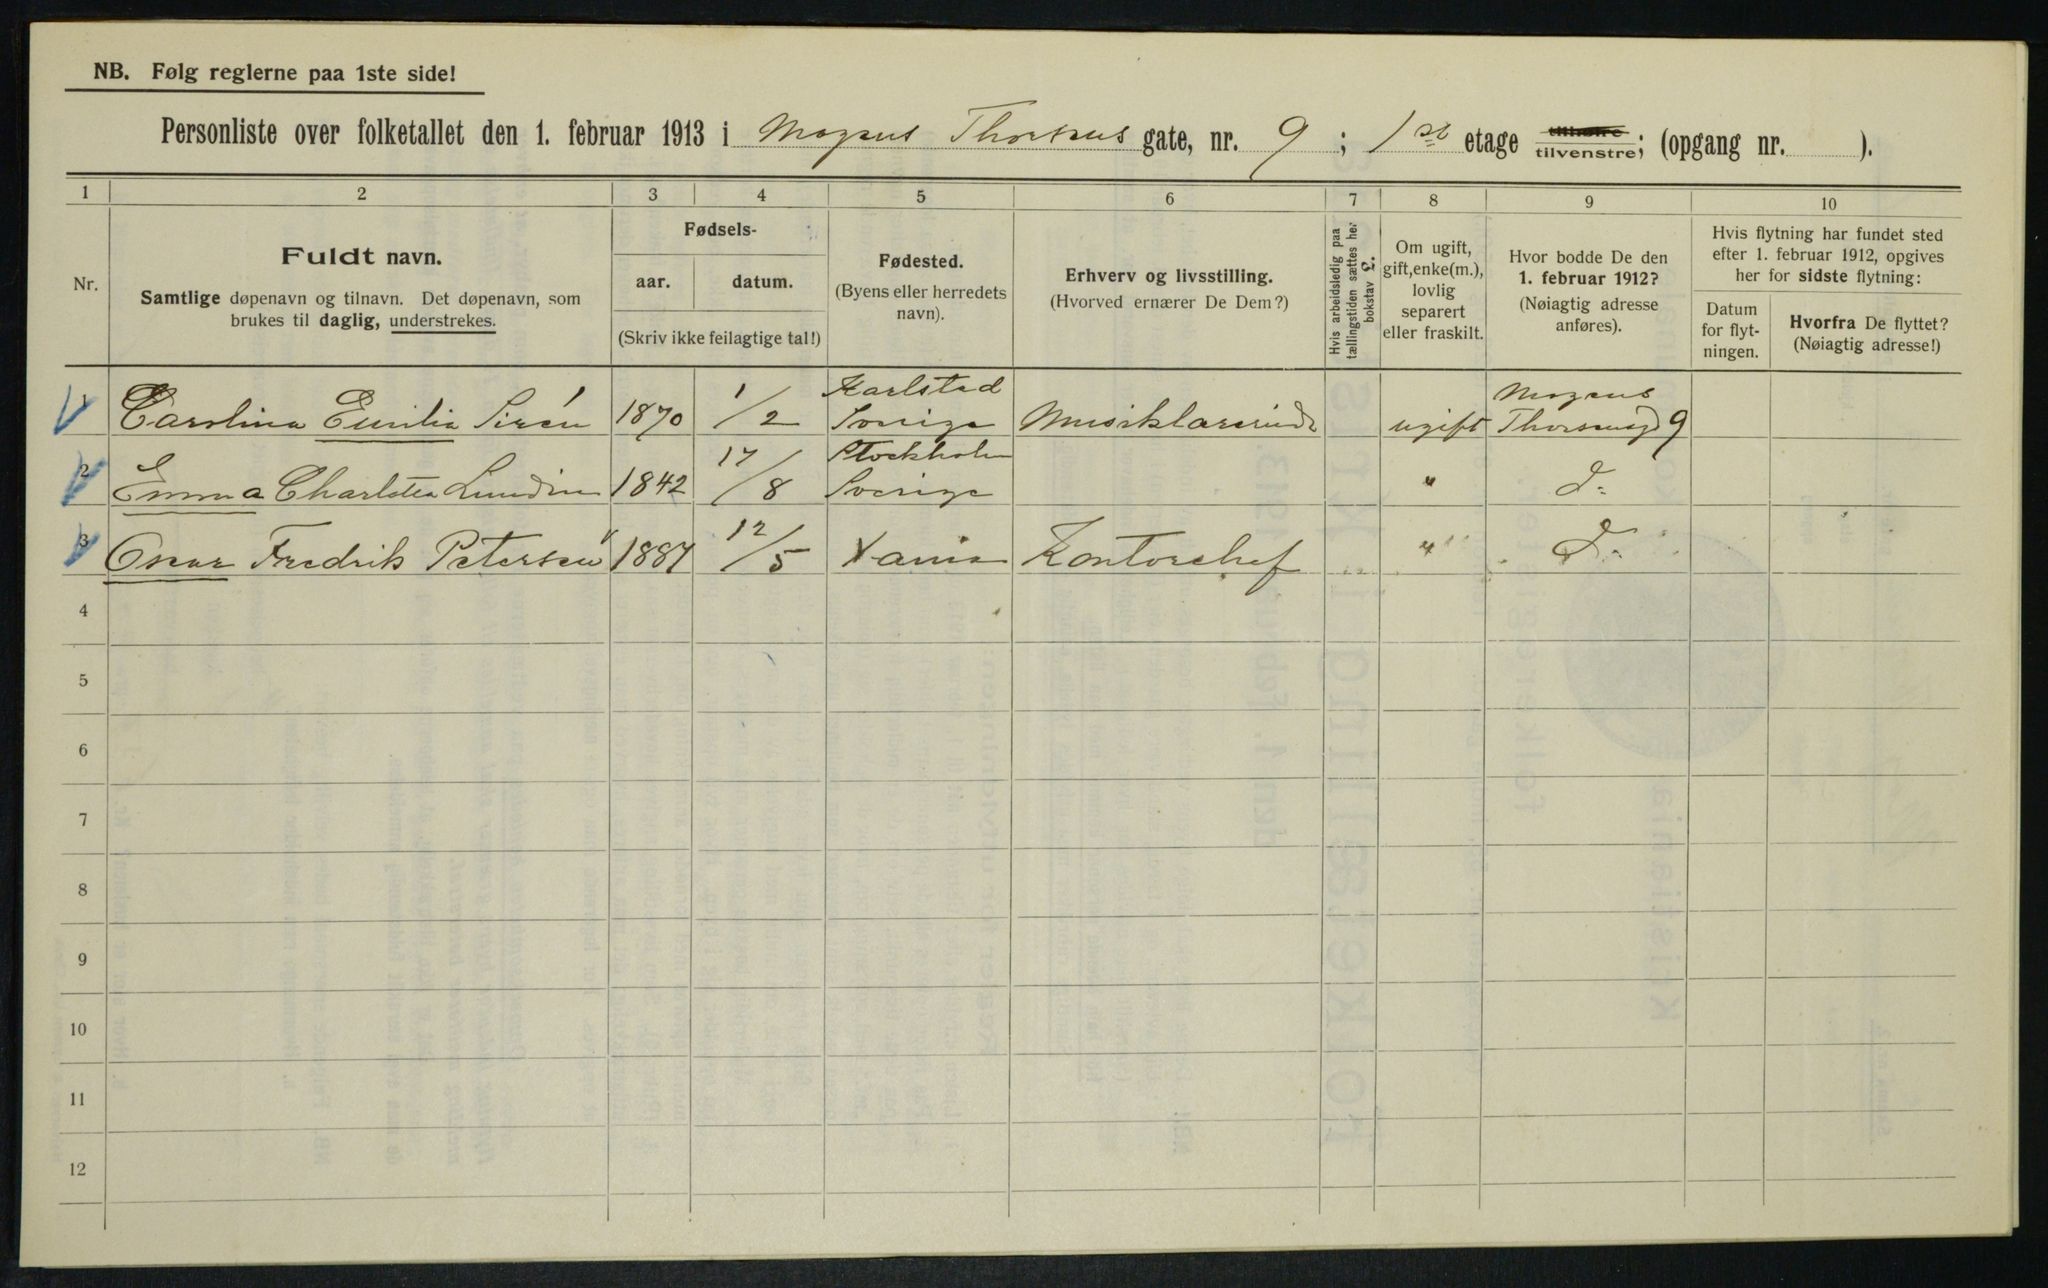 NB. Følg reglerne paa 1ste side!
Personliste over folketallet den 1. februar 1913 i Mogens Thorsens gate, nr. 9 ; 1ste etage tilhøire tilvenstre; (opgang nr. ).
1 2 3 4 5 6 7 8 9 10
Nr.
Fuldt navn.
Samtlige døpenavn og tilnavn. Det døpenavn, som
brukes til daglig, understrekes.
Fødsels-
aar. datum.
(Skriv ikke feilagtige tal!)
Fødested.
(Byens eller herredets
navn).
Erhverv og livsstilling.
(Hvorved ernærer De Dem?)
Hvis arbeidsledig paa
tællingstiden sættes her
bokstav L.
Om ugift,
gift, enke(m.),
lovlig
separert
eller fraskilt.
Hvor bodde De den
1. februar 1912?
(Nøiagtig adresse
anføres).
Hvis flytning har fundet sted
efter 1. februar 1912, opgives
her for sidste flytning:
Datum
for flyt-
ningen.
Hvorfra De flyttet?
(Nøiagtig adresse!)
1 Carolina Emilia Sirén 1870 1/2 Karlstad Sverige Musiklærerinde ugift Mogens Thorsensgd 9
2 Emma Charlotta Lundin 1842 17/8 Stockholm Sverige " d:
3 Oscar Fredrik Petersen 1887 12/5 Xania Kontorchef " d:
4
5
6
7
8
9
10
11
12